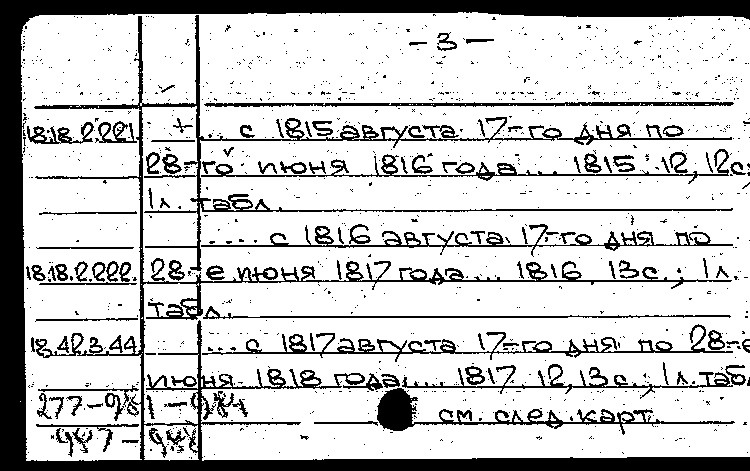 - 3 -
18.18.2.221. + ... с 1815 августа 17-го дня по
28-го июня 1816 года ... 1815. 12, 12с;
1л. табл.
.... с 1816 августа 17-го дня по
18.18.2.222. 28-е июня 1817 года ... 1816. 13с.; 1л.
табл.
18.42.3.44. ... с 1817 августа 17-го дня по 28-е
июня 1818 года.... 1817. 12, 13с.; 1л. табл.
277-981-984 см. след. карт.
987-988